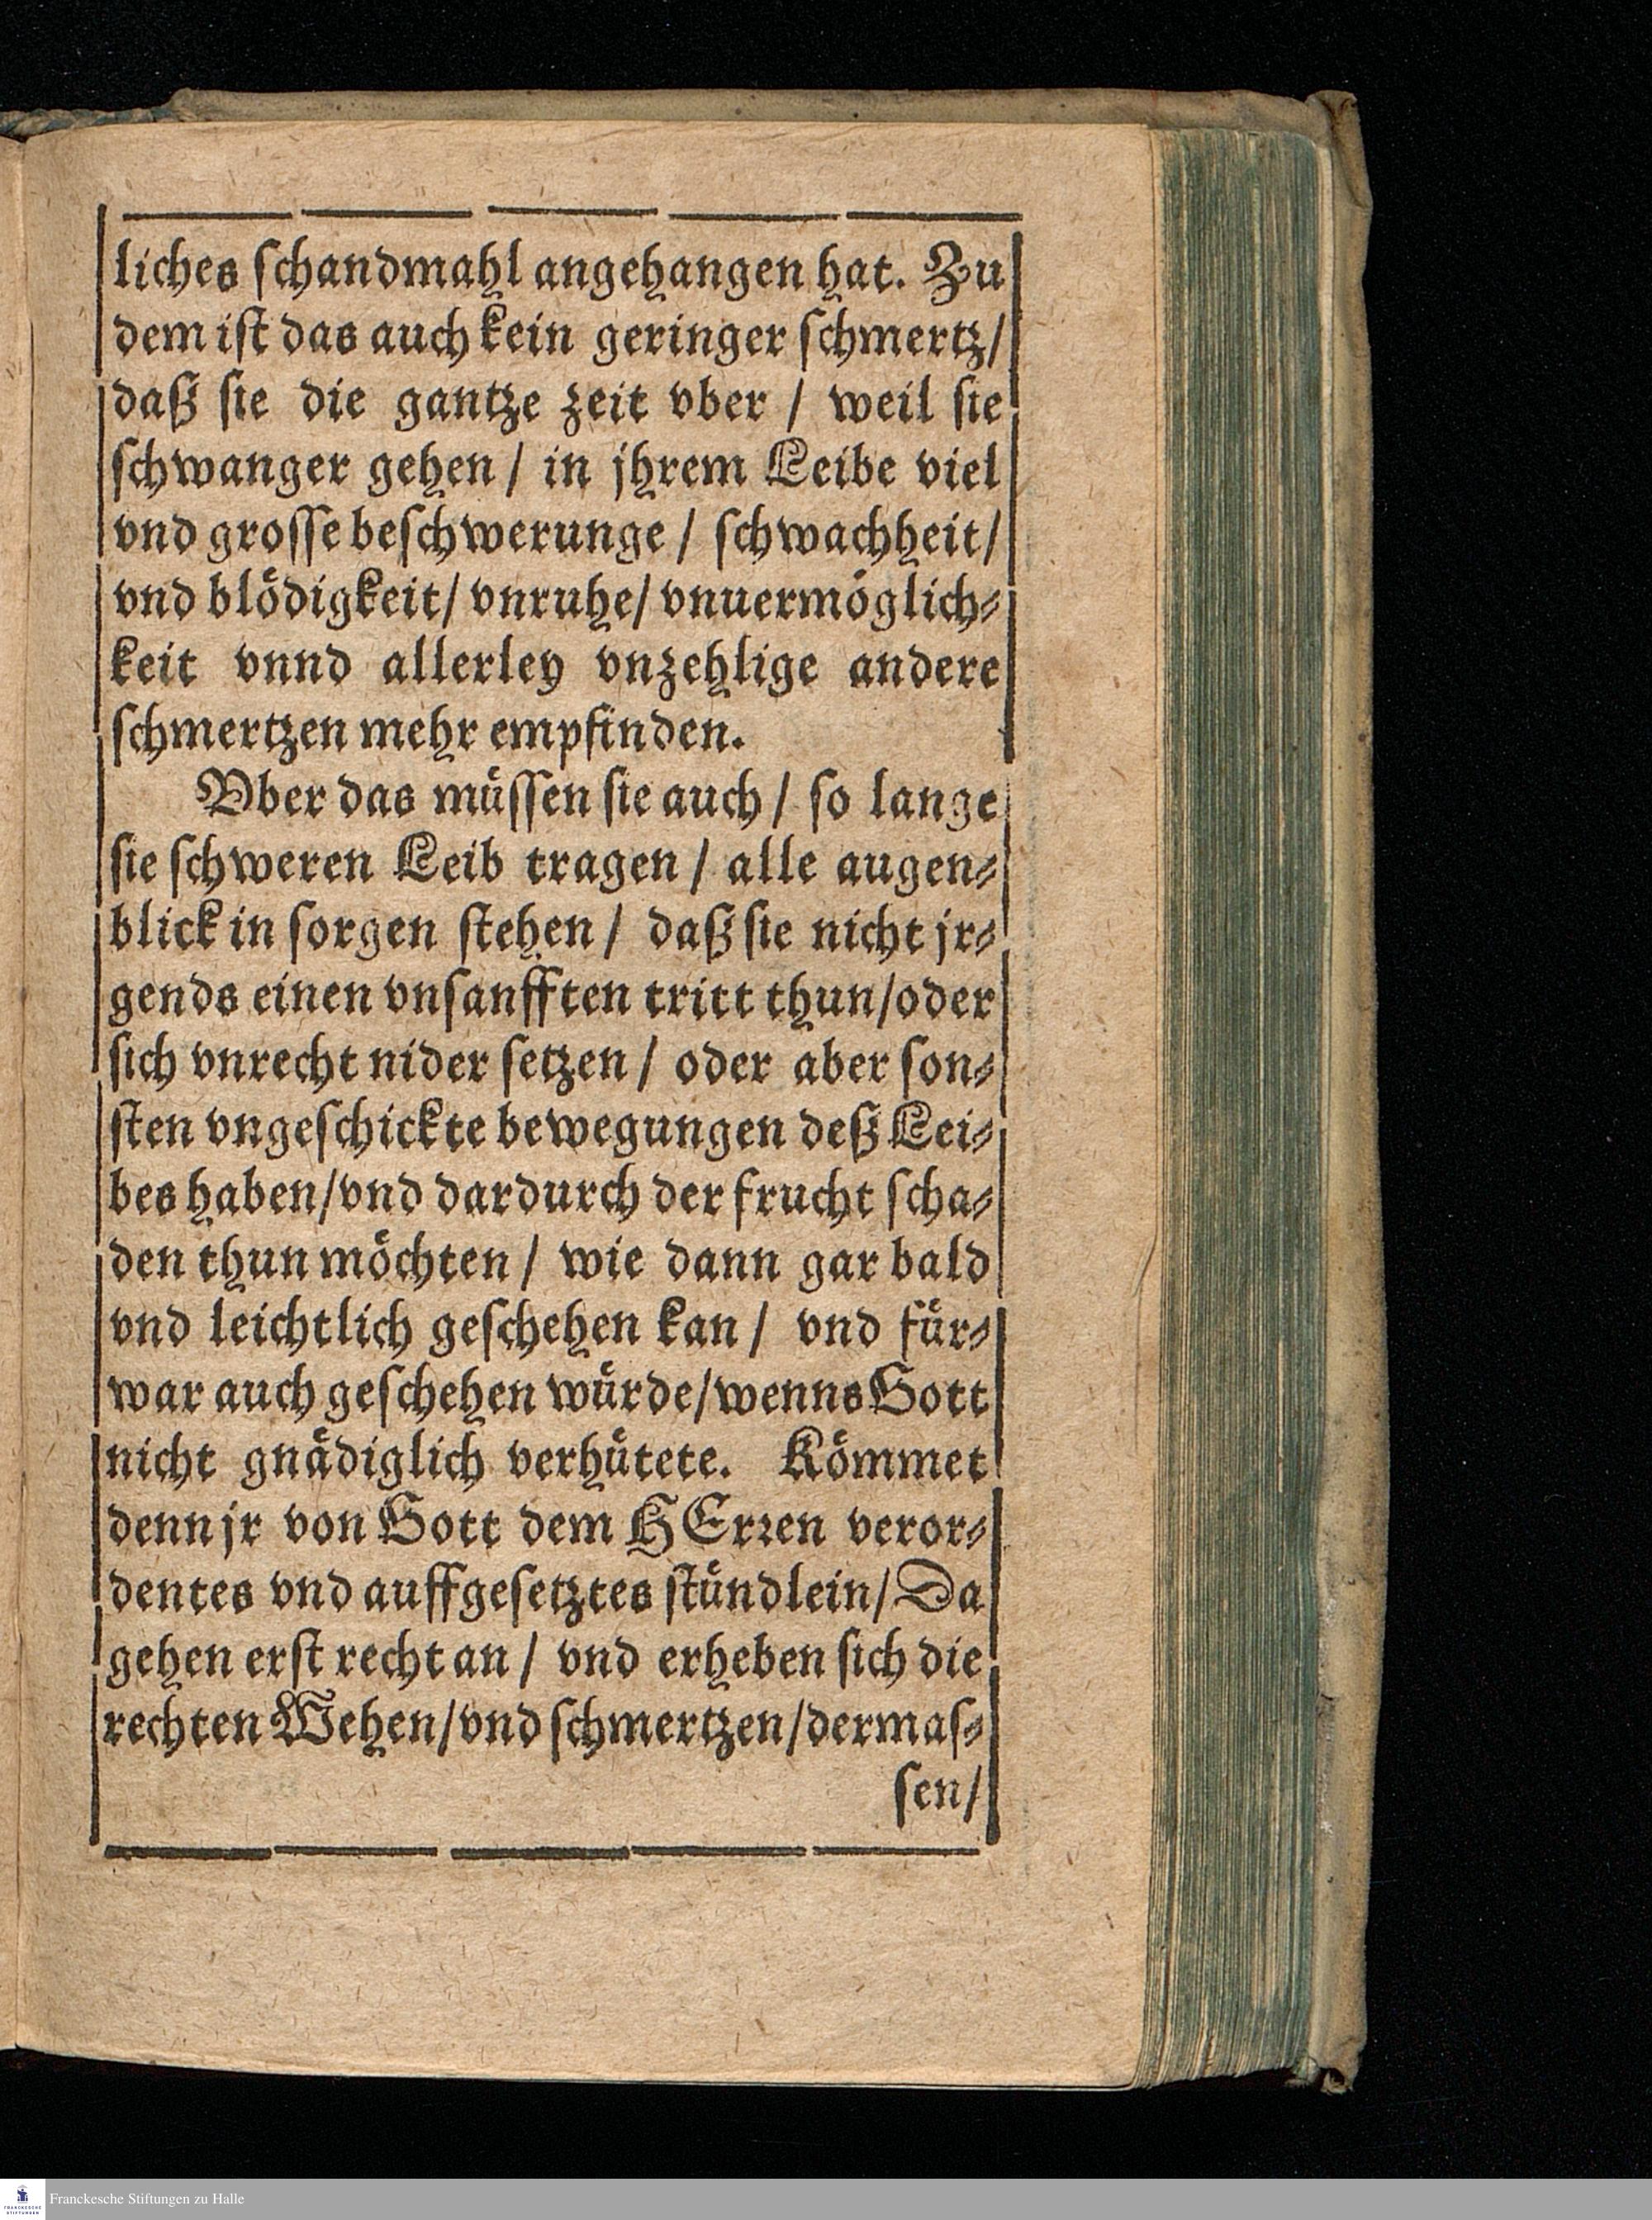 liches ſchandmahl angehangen hat. Zu
dem iſt das auch kein geringer ſchmertz/
daß ſie die gantze zeit vber / weil ſie
ſchwanger gehen / in jhrem Leibe viel
vnd groſſe beſchwerunge / ſchwachheit/
vnd bloͤdigkeit/ vnruhe/ vnuermoͤglich⸗
keit vnnd allerley vnzehlige andere
ſchmertzen mehr empfinden.
Vber das muͤſſen ſie auch / ſo lange
ſie ſchweren Leib tragen / alle augen⸗
blick in ſorgen ſtehen / daß ſie nicht jr⸗
gends einen vnſanfften tritt thun/oder
ſich vnrecht nider ſetzen / oder aber ſon⸗
ſten vngeſchickte bewegungen deß Lei⸗
bes haben/vnd dardurch der frucht ſcha⸗
den thun moͤchten / wie dann gar bald
vnd leichtlich geſchehen kan / vnd fuͤr⸗
war auch geſchehen wuͤrde/wenns Gott
nicht gnaͤdiglich verhuͤtete. Koͤmmet
denn jr von Gott dem HErꝛen veror⸗
dentes vnd auffgeſetztes ſtuͤndlein/ Da
gehen erſt recht an / vnd erheben ſich die
rechten Wehen/vnd ſchmertzen/dermaſ⸗
ſen/
FRANCKESCHE
STIFTUNGEN
Franckesche Stiftungen zu Halle